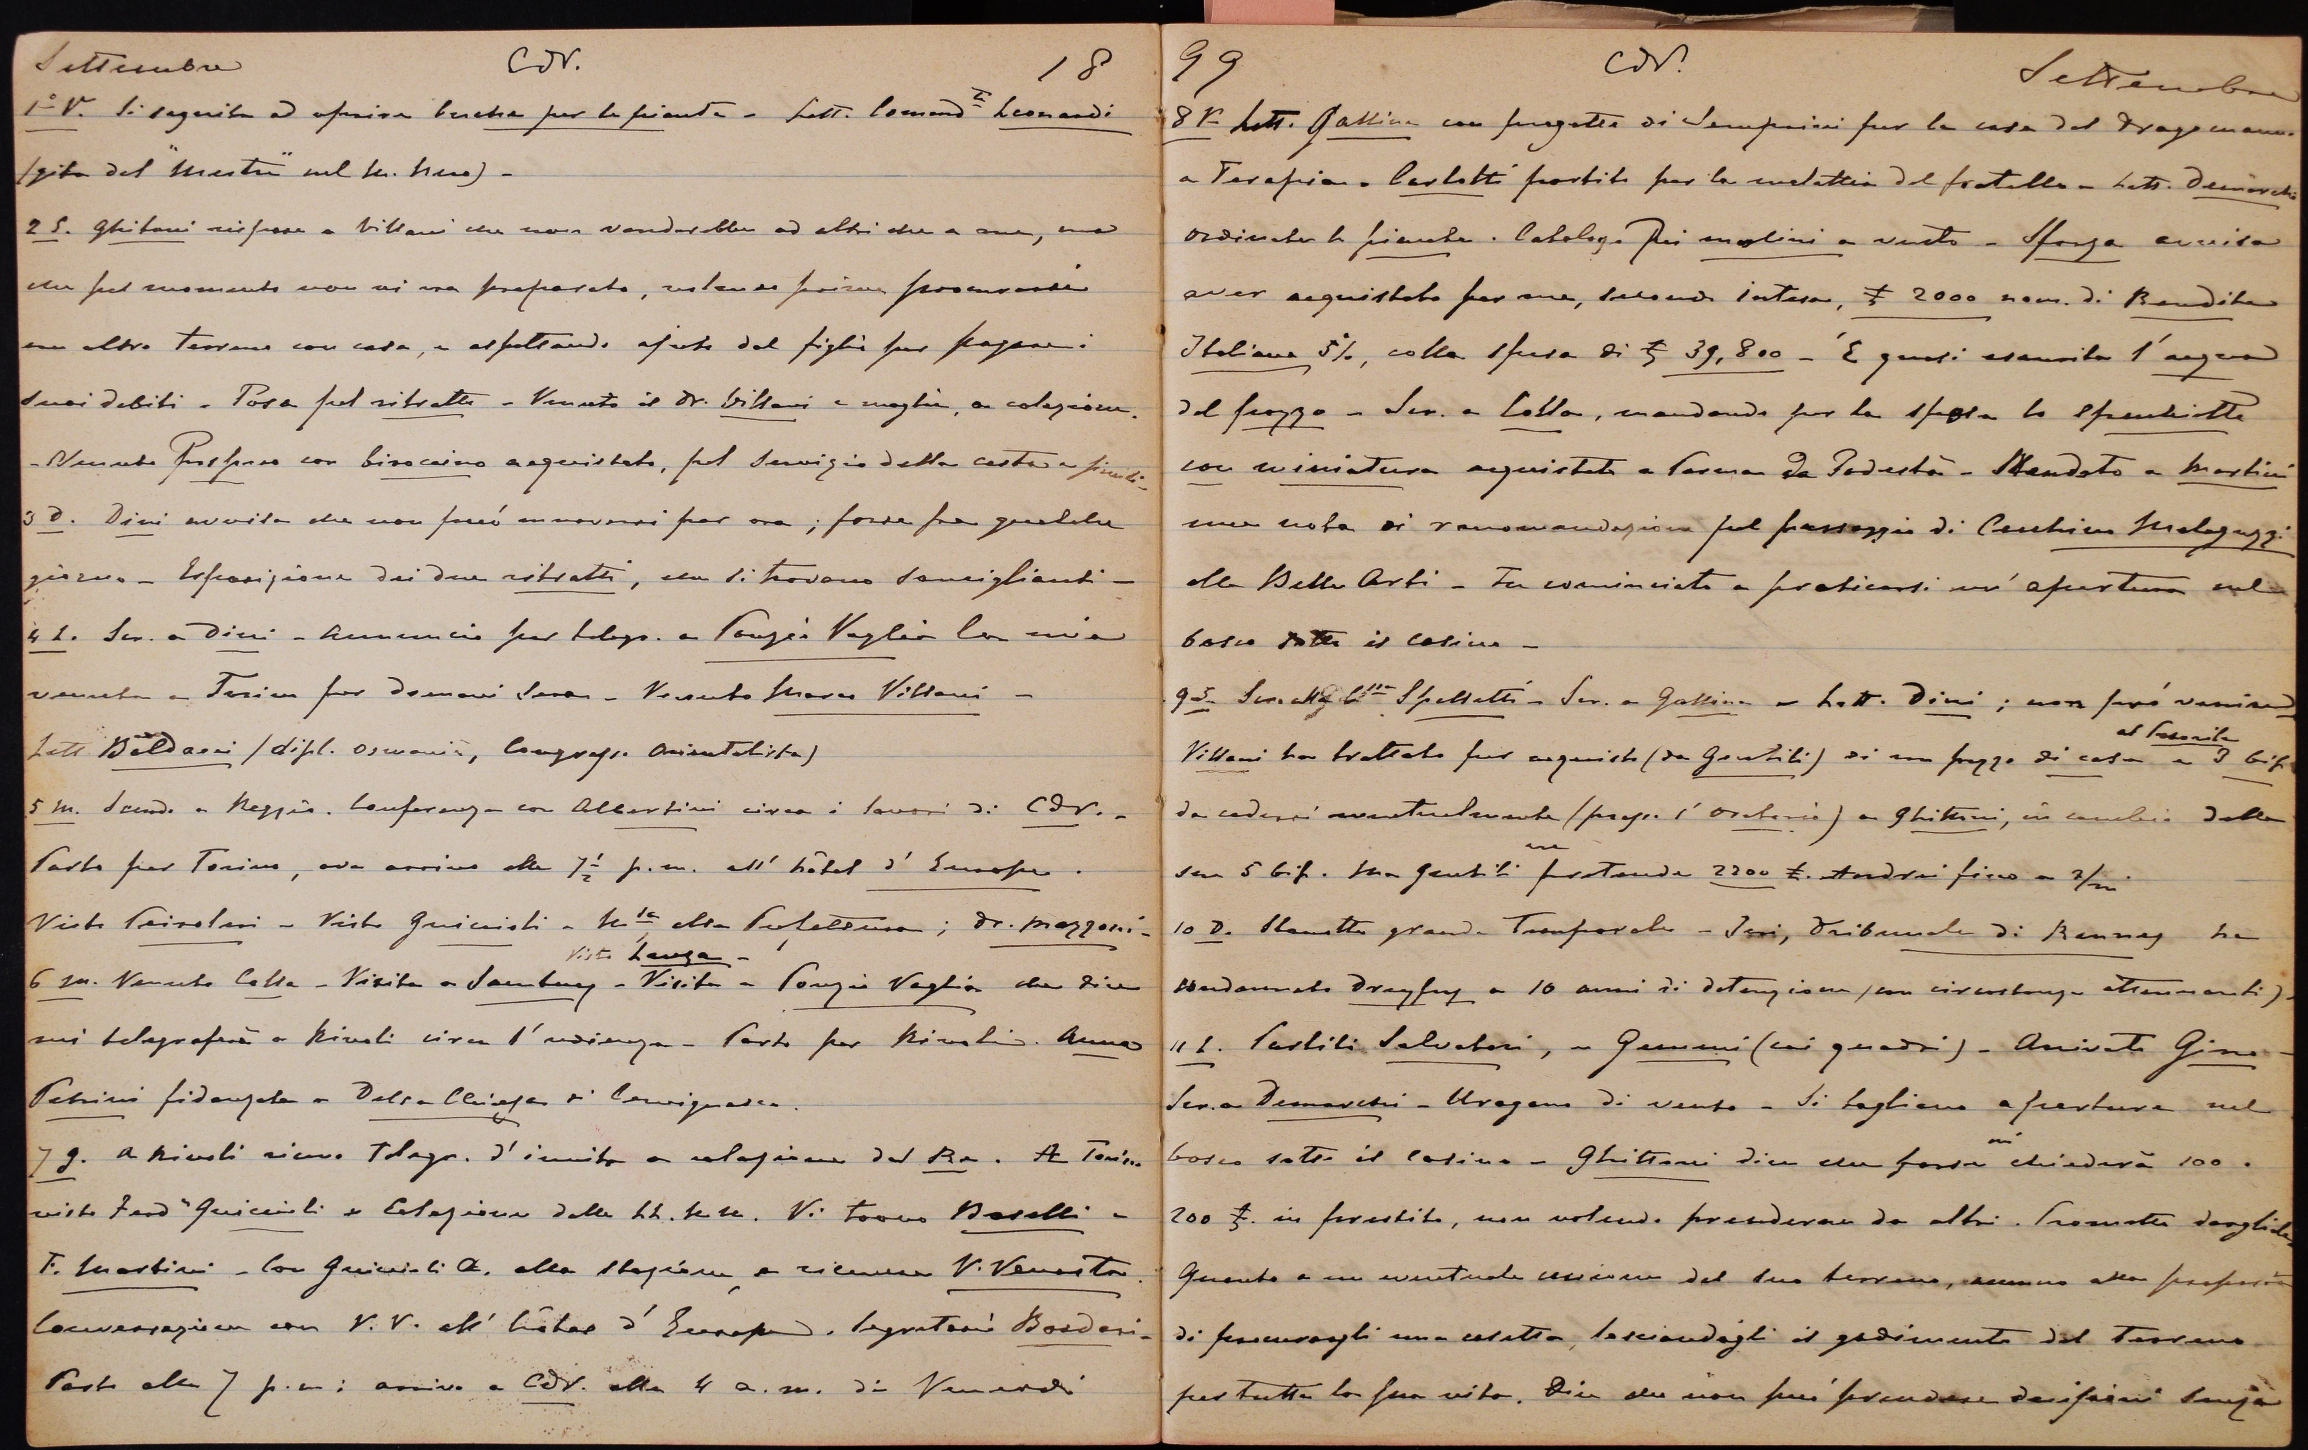 Settembre CdV. 18
1° V. Si seguita ad aprire buche per le piante - Lett. Comand.te Leonardi
(gita del "Mestre" nel M. Nero) -
2 S. Ghittoni rispose a Villani che non venderebbe ad altri che a me, ma
che pel momento non vi era preparato, volendo prima procurarsi
un altro terreno con casa, e aspettando ajuto dal figlio per pagare i
suoi debiti - Posa pel ritratto - Venuto il Dr. Villani e moglie, a colazione.
- Venuto Prospero con biroccino acquistato, pel servizio della
3 D. Dini avvisa che non può muoversi per ora; forse fra qualche
giorno - Esposizione dei due ritratti, che si trovano somiglianti -
4 L. Scr. a Dini - Annuncio per telegr. a Ponzio Vaglia la mia
venuta a Torino per domani sera - Venuto Marco Villani -
Lett. Baldacci (dipl. osmanié, Congresso Orientalista)
5 M. Scendo a Reggio. Conferenza con Albertini circa i lavori di CdV. -
Parto per Torino, ove arrivo alle 7½ p.m. all' hôtel d' Europe.
Visto Peiroleri - Visto Guiccioli - M.sa alla Prefettura; Dr. Mazzoni -
Visto Lanza -
6 M. Venuto Calla - Visita a Sambuy - Visita a Ponzio Vaglia che dice
mi telegraferà a Rivoli circa l' udienza - Parto per Rivoli. Anna
Petrini fidanzata a Della Chiesa di Cervignasco.
7 G. A Rivoli ricevo telegr. d' invito a colazione dal Re. A Torino
visto Ferd° Guiccioli e Colazione dalle LL. MM. Vi trovo Boselli e
F. Martini - Con Guiccioli A. alla stazione a ricevere V. Venosta.
Conversazione con V. V. all' hôtel d' Europe. Segretario Bosdari -
Parto alle 7 p.m; arrivo a CdV. alle 4 a.m. di Venerdì
99 CdV. Settembre
8 V. Lett. Gallina con progetto di Semprini per la casa del Dragomanno
a Terapia. Carlotti partito per la malattia del fratello - Lett. Demarchi
ordinate le piante. Catalogo pei molini a vento - Sforza avvisa
aver acquistato per me, secondo intesa, £ 2000 nom. di Rendita
Italiana 5%, colla spesa di £ 39,800 - È quasi esaurita l' acqua
del pozzo - Scr. a Calla, mandando per la sposa lo
con miniatura acquistato a Parma da Podestà - Mandato a Martini
una nota di raccomandazione pel passaggio di Cecchino Malaguzzi
alle Belle Arti - Fu cominciato a praticarsi un' apertura nel
bosco sotto il casino -
9 S. Scr. alla C.ssa Spalletti - Scr. a Gallina - Lett. Dini; non può venire
al Casorile
Villani ha trattato per acquisto (da Gentili) di un pezzo di casa e 3 bif.
da cedersi eventualmente (presso l' Oratorio) a Ghittoni, in cambio delle
sue 5 bif. Ma Gentili ne pretende 2200 £. Andrei fino a 2/m.
10 D. Stanotte grande Temporale - Ieri, Tribunale di Rennes ha
condannato Dreyfus a 10 anni di detenzione (con circostanze attenuanti) -
11 L. Partiti Salvatori, e Gemmi (coi quadri) - Arrivato Gino -
Scr. a Demarchi - Uragano di vento - Si tagliano aperture nel
bosco sotto il casino - Ghittoni dice che forse mi chiederà 100 o
200 £. in prestito, non volendo prenderne da altri. Prometto dargliele
Quanto a un eventuale cessione del suo terreno, accenno alla proposta
di procurargli una casetta, lasciandogli il godimento del terreno
per tutta la sua vita. Dice che non può prendere decisioni senza